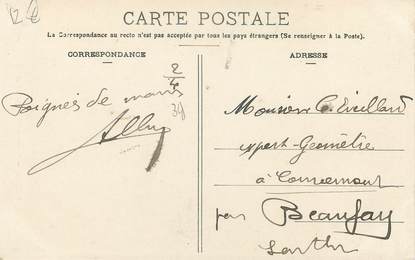 12 €
CARTE POSTALE
La Correspondance au recto n'est pas acceptée par tous les pays étrangers (Se renseigner à la Poste).
CORRESPONDANCE
ADRESSE
2/4
Poignés de mains
Monsieur C. Vieillard
expert-Geomètre
à
par Beaufay
Sarthe